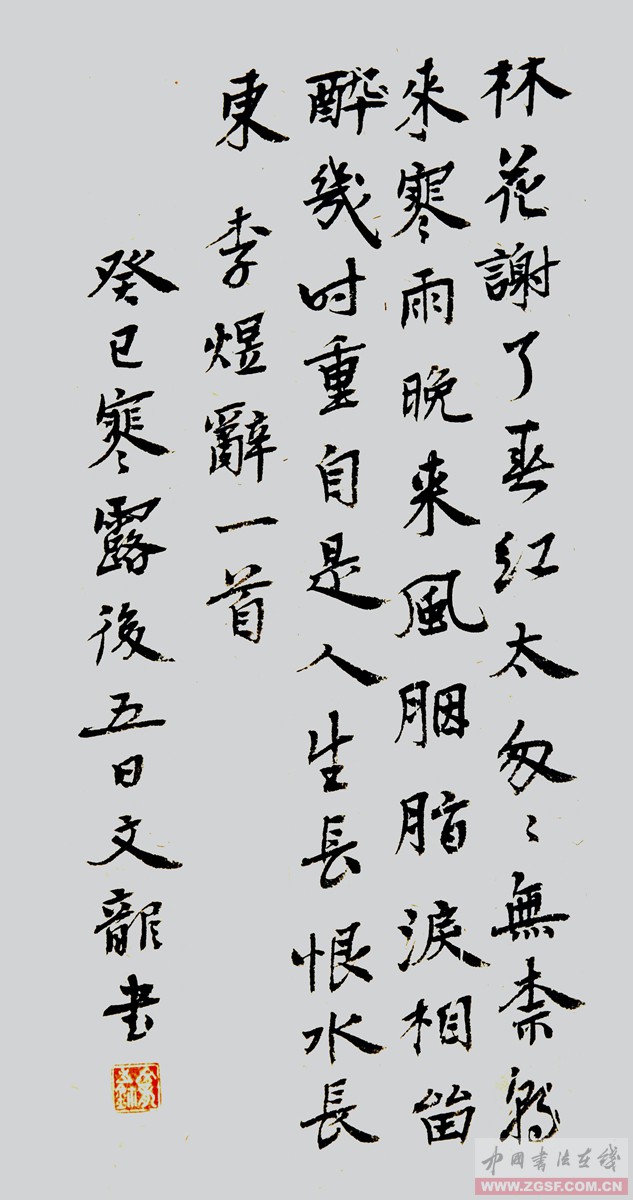 林花謝了春红太匆〻無柰朝
來寒雨晚来風胭脂淚相留
醉幾时重自是人生長恨水長
東 李煜辭一首
癸巳寒露後五日文龍书
中国书法在线
WWW.ZGSF.COM.CN